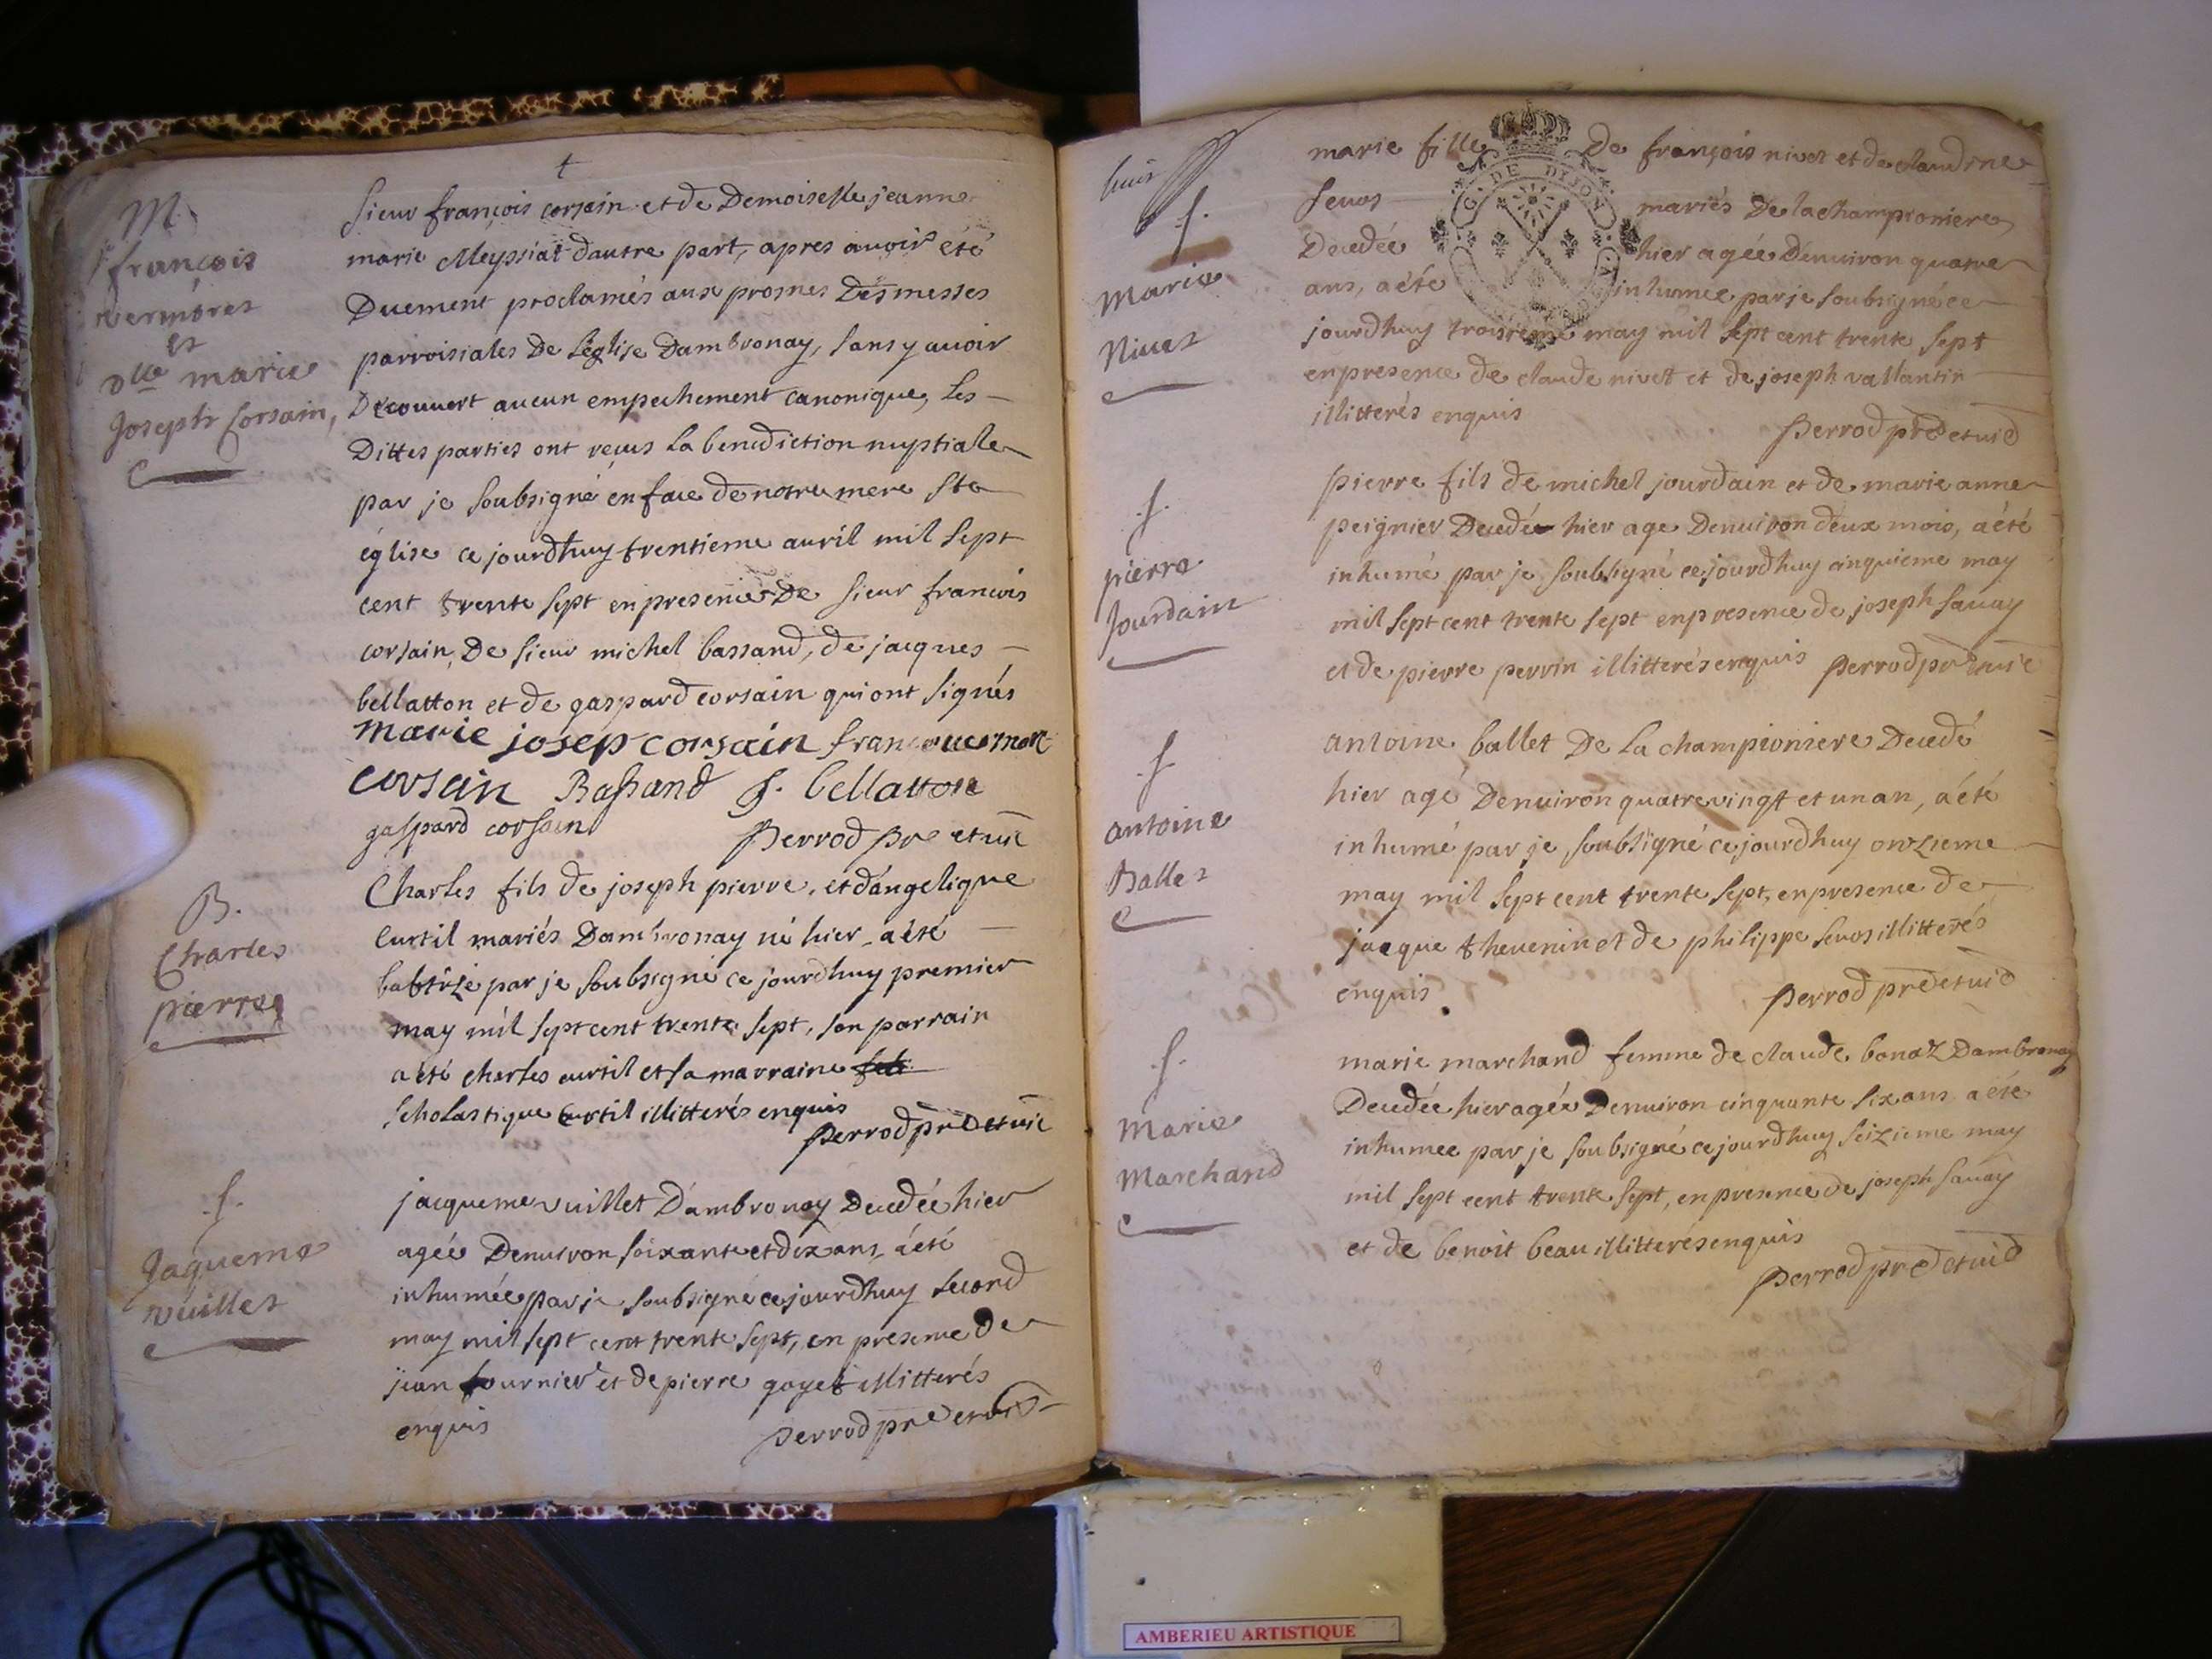 M.
françois
vermores
et
Dlle marie
Joseph Corsain,
sieur françois corsain et de Demoiselle jeanne
marie Meyssiat dautre part, apres avoir été
Duement proclamés aux prosnes Des messes
parroissiales De Léglise Dambronay, sans y avoir
Decouvert aucun empechement canonique, Les
Dittes parties ont reçus La benediction nuptiale
par je soubsigné en face de notre mere ste
église ce jourdhuy trentieme avril mil sept
cent trente sept en presence De sieur francois
corsain, De sieur michel bassand, de jacques
bellatton et de gaspard corsain qui ont signés
marie josep corsain
corsain Bassand J. bellatton
gaspard corsain Perrod pre et vic
B.
Charles
pierre
Charles fils de joseph pierre, et dángelique
Curtil mariés Dambronay né hier, a été
babtizé par je soubsigné ce jourdhuy premier
may mil sept cent trente sept, son parrain
a été charles curtil et sa marraine
scholastique Curtil illitterés enquis
Perrod pre et vic
f.
Jaquema
Vuillet
jaqueme vuillet Dambronay Decedée hier
agée Denviron soixante et dix ans, a été
inhumée par je soubsigné ce jourdhuy second
may mil sept cent trente sept, en presence de
jean fournier et de pierre goyet illitterés
enquis Perrod pre et vic
huit
f.
Marie
Nivet
marie fille de françois nivet et de claudine
sevos mariés De la championiere
Decedée hier agée Denviron quatre
ans, a été inhumée par je soubsigné ce
jourdhuy troisieme may mil sept cent trente sept
en presence de claude nivet et de joseph vallantin
illitterés enquis
Perrod pre et vic
G. DE DIJON
f.
pierre
Jourdain
pierre fils de michel jourdain et de marie anne
peignier Decedé hier age Denviron deux mois, a été
inhumé par je soubsigné ce jourdhuy cinquieme may
mil sept cent trente sept en presence de joseph savay
et de pierre perrin illitterés enquis Perrod pre et vic
f
antoine
Ballet
antoine ballet De La championiere Decedé
hier agé Denviron quatrevingt et un an, a été
inhumé par je soubsigné ce jourdhuy onzieme
may mil sept cent trente sept, en presence de
jacque thevenin et de philippe sevos illitterés
enquis Perrod pre et vic
f.
Marie
Marchand
marie marchand femme de claude bonaz Dambronay
Decedée hier agée Denviron cinquante six ans a été
inhumée par je soubsigné ce jourdhuy seizieme may
mil sept cent trente sept, en presence de joseph savay
et de benoit beau illitterés enquis
Perrod pre et vic
AMBERIEU ARTISTIQUE